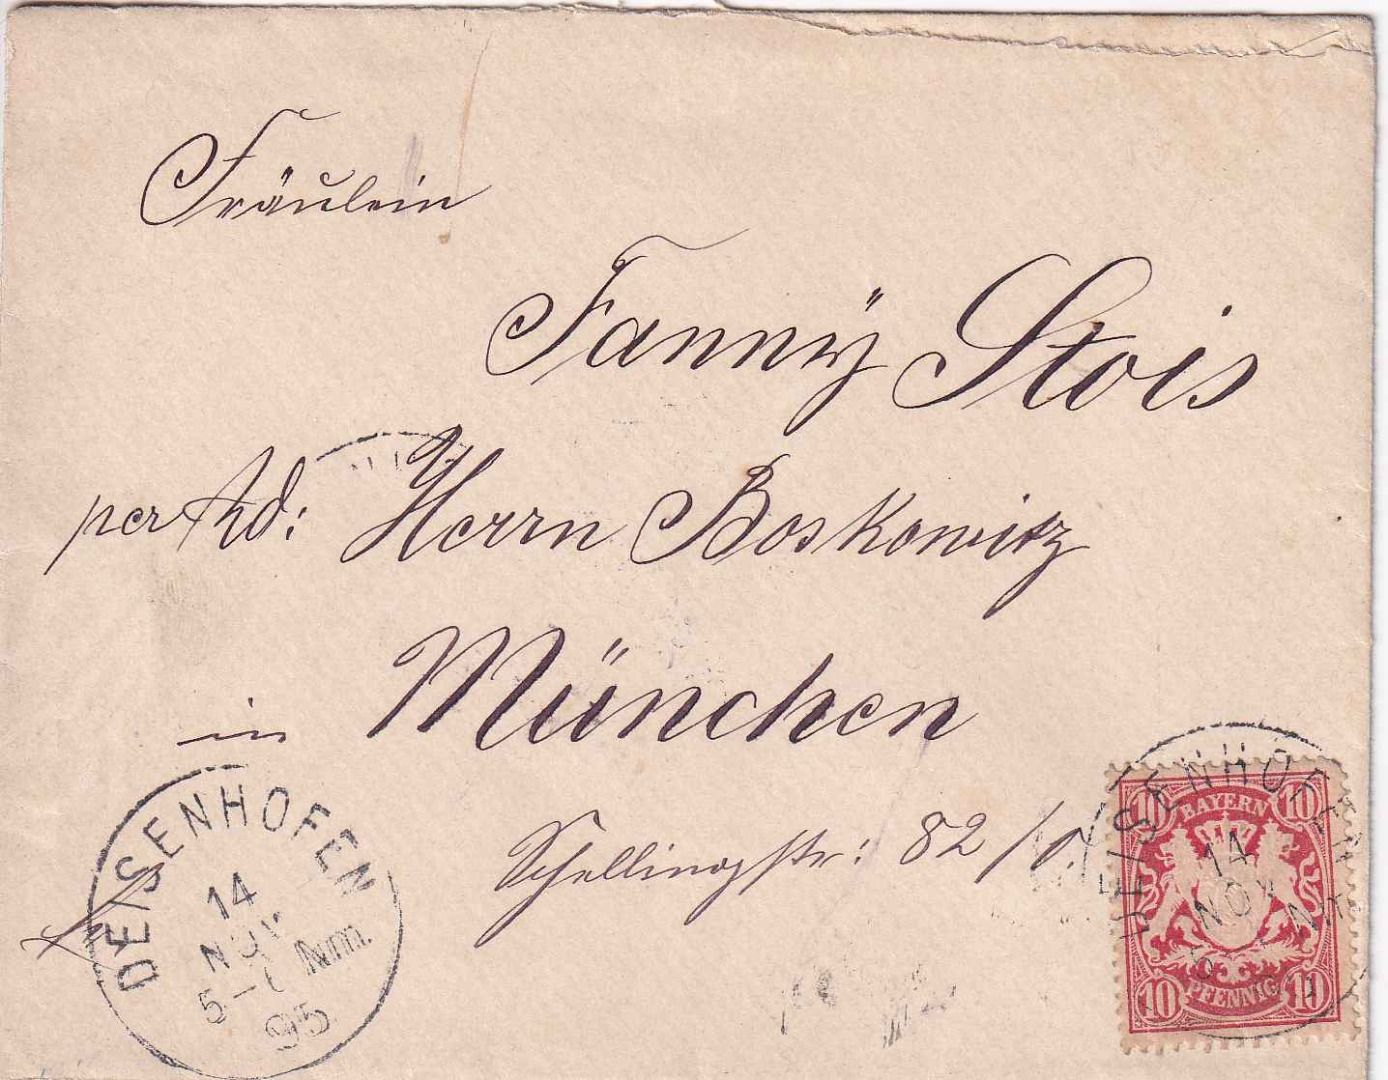 Fräulein
Fanny Stois
per Ad: Herrn Boskowitz
in München
Schellingstr: 82/0.
DEISENHOFEN
14
NOV
5-6 Nm.
95
DEISENHOFEN
14
NOV
10 BAYERN 10
10 PFENNIG 10